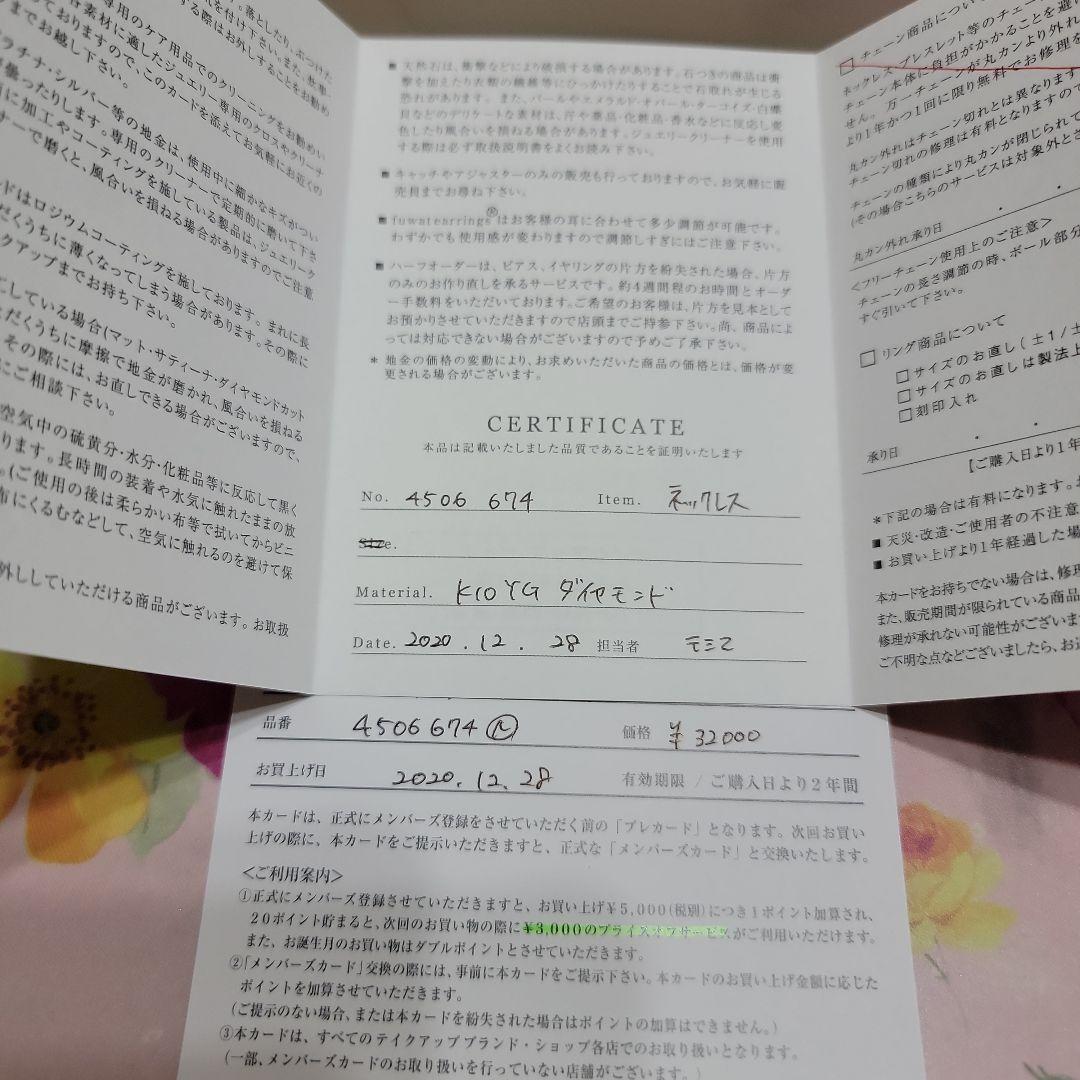 専用のケア用品でのクリーニングをお勧めい
各素材に適したジュエリー専用のクロスやクリーナ
ておりますので、このカードを添えてお気軽にお近くの
までお越し下さい。
プラチナ・シルバー等の地金は、使用中に細かなキズがつい
専用のクリーナーで定期的に磨いて下さ
に加工やコーティングを施している製品は、ジュエリーク
ナーで磨くと、風合いを損ねる場合がありますのでご注意
ンドはロジウムコーティングを施しております。まれに長
だくうちに薄くなってしまう場合があります。その際に
クアップまでお持ち下さい。
している場合(マット・サティーナ・ダイヤモンドカット
ただくうちに摩擦で地金が磨かれ、風合いを損ねる
その際には、お直しできる場合がございますので、
にご相談下さい。
空気中の硫黄分・水分・化粧品等に反応して黒く
ります。長時間の装着や水気に触れたままの放
。(ご使用の後は柔らかい布等で拭いてからビニ
布にくるむなどして、空気に触れるのを避けて保
外ししていただける商品がございます。お取扱
■ 天然石は、衝撃などにより破損する場合があります。石つきの商品は衝
撃を加えたり衣類の繊維等にひっかけたりすることで石取れが生じる
恐れがあります。また、パールやエメラルド・オパール・ターコイズ・白蝶
貝などのデリケートな素材は、汗や薬品・化粧品・香水などに反応し変
色したり風合いを損ねる場合があります。ジュエリークリーナーを使用
する際は必ず取扱説明書をよくお読み下さい。
■ キャッチやアジャスターのみの販売も行っておりますので、お気軽に販
売員までお尋ね下さい。
■ fuwatearrings®はお客様の耳に合わせて多少調節が可能です。
わずかでも使用感が変わりますので調節しすぎにはご注意下さい。
■ ハーフオーダーは、ピアス、イヤリングの片方を紛失された場合、片方
のみのお作り直しを承るサービスです。約4週間程のお時間とオーダ
ー手数料をいただいております。ご希望のお客様は、片方を見本として
お預かりさせていただきますので店頭までご持参下さい。尚、商品によ
っては対応できない場合がございますので予めご了承下さい。
* 地金の価格の変動により、お求めいただいた商品の価格とは、価格が変
更される場合がございます。
CERTIFICATE
本品は記載いたしました品質であることを証明いたします
No. 4506 674 Item. ネックレス
Size.
Material. K10YG ダイヤモンド
Date. 2020.12.28 担当者
□ チェーン商品につい
ネックレス・ブレスレット等のチェー
チェーン本体に負担がかかることを避け
せん。万一チェーンが丸カンより外れ
より1年かつ1回に限り無料でお修理を
丸カン外れはチェーン切れとは異なります
チェーン切れの修理は有料となりますので
チェーンの種類により丸カンが閉じられて
(その場合こちらのサービスは対象外とさ
丸カン外れ承り日 ・ ・
<フリーチェーン使用上のご注意>
チェーンの長さ調節の時、ボール部分
すぐ引いて下さい。
□ リング商品について
□ サイズのお直し(±1/±
□ サイズのお直しは製法上
□ 刻印入れ
承り日 ・ ・
【ご購入日より1年
*下記の場合は有料になります。
■ 天災・改造・ご使用者の不注意
■ お買い上げより1年経過した場
本カードをお持ちでない場合は、修理
また、販売期間が限られている商品
修理が承れない可能性がございま
ご不明な点などございましたら、お近
品番 4506674 価格 ¥32000
お買上げ日 2020.12.28 有効期限 / ご購入日より2年間
本カードは、正式にメンバーズ登録をさせていただく前の「プレカード」となります。次回お買い
上げの際に、本カードをご提示いただきますと、正式な「メンバーズカード」と交換いたします。
<ご利用案内>
①正式にメンバーズ登録させていただきますと、お買い上げ¥5,000(税別)につき1ポイント加算され、
20ポイント貯まると、次回のお買い物の際に¥3,000のプライスオフサービスがご利用いただけます。
また、お誕生月のお買い物はダブルポイントとさせていただきます。
②「メンバーズカード」交換の際には、事前に本カードをご提示下さい。本カードのお買い上げ金額に応じた
ポイントを加算させていただきます。
(ご提示のない場合、または本カードを紛失された場合はポイントの加算はできません。)
③本カードは、すべてのテイクアップブランド・ショップ各店でのお取り扱いとなります。
(一部、メンバーズカードのお取り扱いを行っていない店舗がございます。)